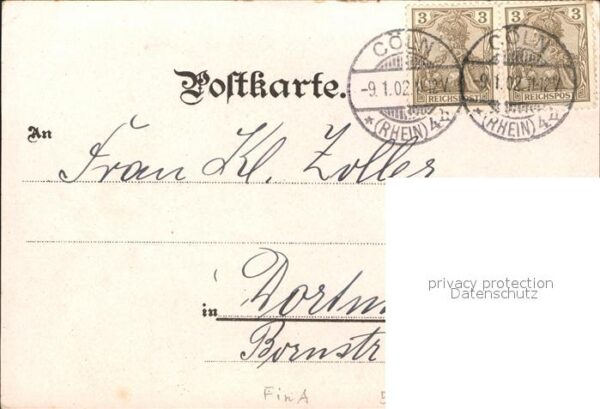 3 3 3 3
CÖLN CÖLN
-9.1.02. -9.1.02.
REICHSPOST REICHSPOS
*(RHEIN)4.b. *(RHEIN)4.b.
Postkarte.
An
Frau Kl. Zoller
privacy protection
Datenschutz
in Dortm
Bornstr
FinA